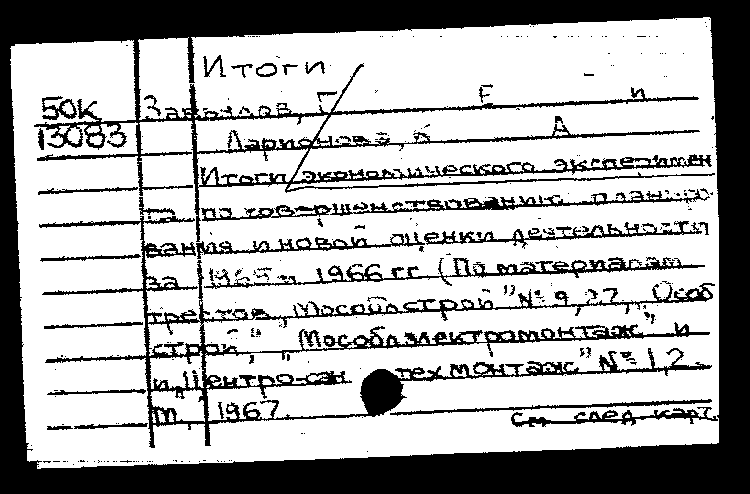 Итоги
50К Завьялов, Г Е и
13083 Ларионова, К А
Итоги экономического эксперимен
та по совершенствованию планиро
вания и новой оценки деятельности
за 1965 и 1966 гг (По материалам
трестов „Мособлстрой" № 9, 27, „Особ
строй", „Мособлэлектромонтаж" и
и „Центро-сан техмонтаж" № 1, 2.
М, 1967.
См след. карт.